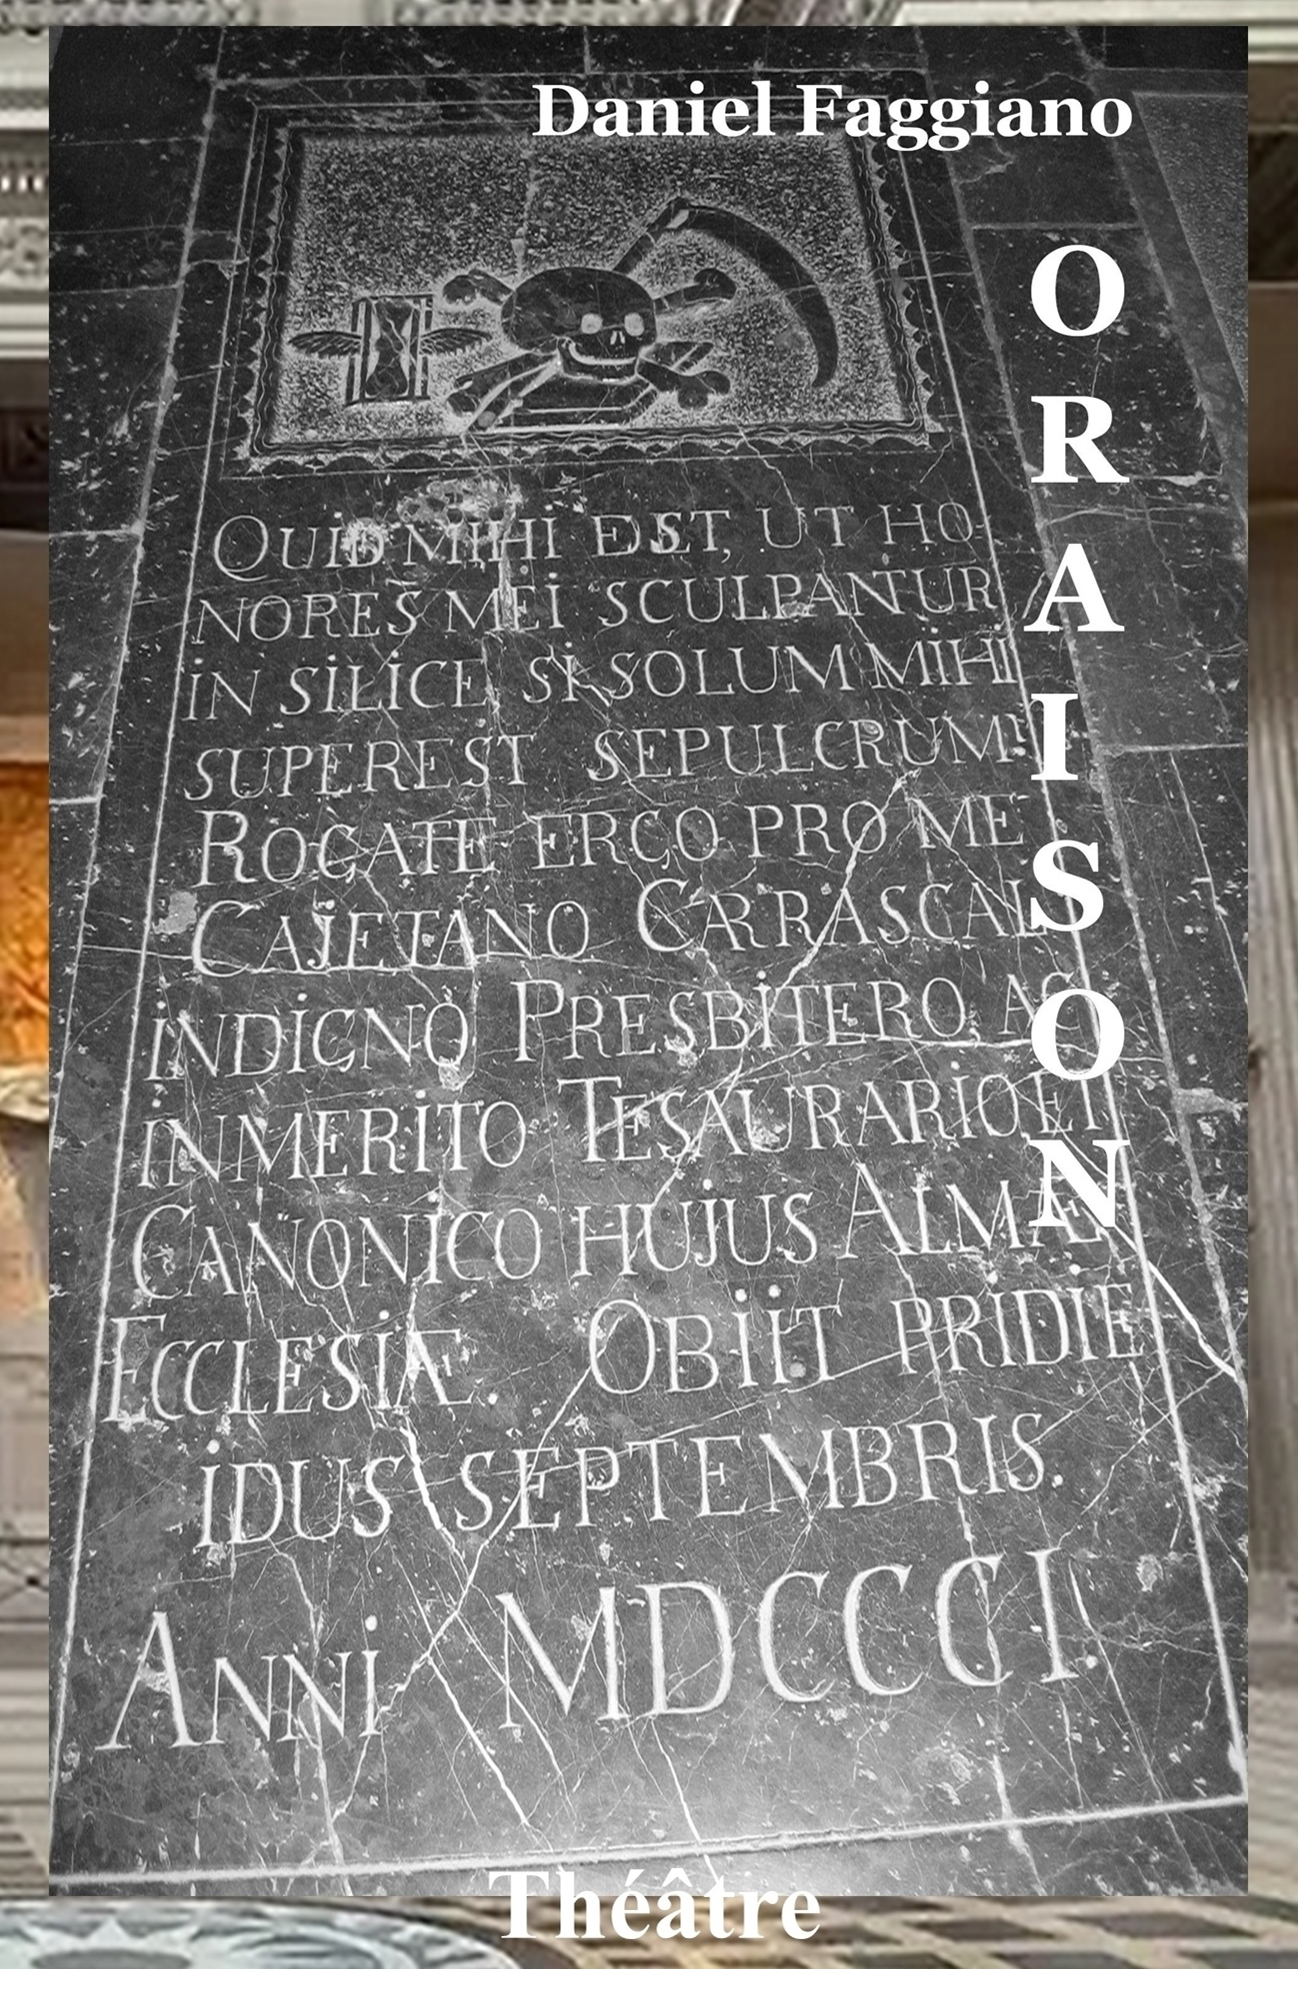 Daniel Faggiano
ORAISON
QUID MIHI EST, UT HO-
NORES MEI SCULPANTUR
IN SILICE SI SOLUM MIHI
SUPEREST SEPULCRUM!
ROGATE ERGO PRO ME
CAJETANO CARRASCAL
INDIGNO PRESBITERO, AC
INMERITO TESAURARIO ET
CANONICO HUJUS ALMAE
ECCLESIÆ. OBIIT PRIDIE
IDUS SEPTEMBRIS.
ANNI MDCCCI
Théâtre